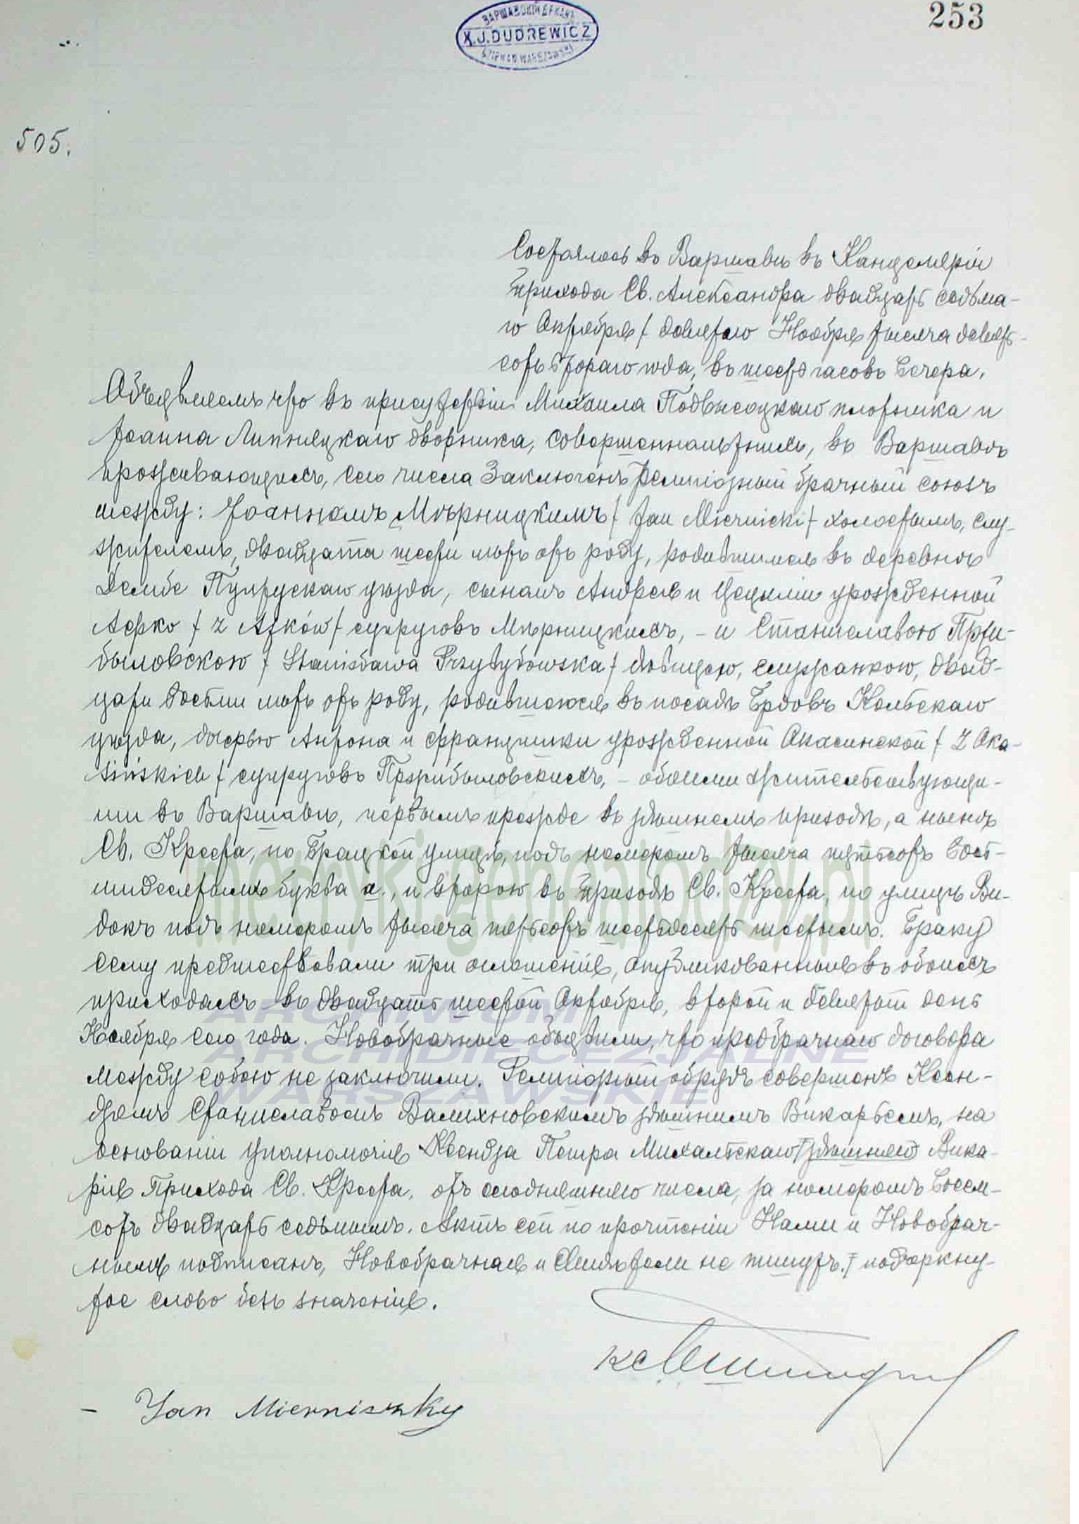 ВАРШАВСКІЙ ДЕКАНЪ
X.J.DUDREWICZ
DZIEKAN WARSZAWSKI
253
505.
Состоялось въ Варшавѣ въ Канцеляріи
Прихода Св. Александра двадцать седьма-
го Октября / девятаго Ноября тысяча девять-
сотъ второго года, въ шесть часовъ вечера.
Объявляемъ что въ присутствіи Михаила Подвысоцкаго плотника и
Іоанна Липницкаго дворника, совершеннолѣтнихъ, въ Варшавѣ
проживающихъ, сего числа заключенъ религіозный брачный союзъ
между: Іоанномъ Мѣрницкимъ / Jan Miernicki / холостымъ, слу-
жителемъ, двадцати шести лѣтъ отъ роду, родившимся въ деревнѣ
Пултускаго уѣзда, сыномъ Андрея и Цециліи урожденной
/ z / супруговъ Мѣрницкихъ, – и Станиславою Пржи-
быловскою / Stanisława Przybyłowska / дѣвицею, служанкою, двад-
цати восьми лѣтъ отъ роду, родившеюся въ посадѣ Брдовъ Кольскаго
уѣзда, дочерью Антона и Францишки урожденной Окасинской / z Oka-
sińskich / супруговъ Пржибыловскихъ, – обоими жительствующи-
ми въ Варшавѣ, первымъ прежде въ здѣшнемъ приходѣ, а нынѣ
Св. Креста, по Брацкой улицѣ, подъ номеромъ тысяча пятьсотъ вось-
мидесятымъ буква а., и второю въ Приходѣ Св. Креста, по улицѣ Ви-
докъ подъ номеромъ тысяча пятьсотъ шестьдесятъ шестымъ. Браку
сему предшествовали три оглашенія, опубликованныя въ обоихъ
приходахъ въ двадцать шестой Октября, второй и девятый день
Ноября сего года. Новобрачные объявили, что предбрачнаго договора
между собою не заключили. Религіозный обрядъ совершенъ Ксен-
дзомъ Станиславомъ здѣшнимъ Викарьемъ, на
основаніи уполномочія Ксендза Петра здѣшняго Вика-
рія Прихода Св. Креста, отъ сегодняшняго числа, за номеромъ восем-
сотъ двадцать седьмымъ. Актъ сей по прочтеніи Нами и Новобрач-
нымъ подписанъ, Новобрачная и Свидѣтели не пишутъ. / подчеркну-
тое слово безъ значенія.
– Jan Mierniszky
medryk.genealodzy.pl
ARCHIWUM
ARCHIDIECEZJALNE
WARSZAWSKIE